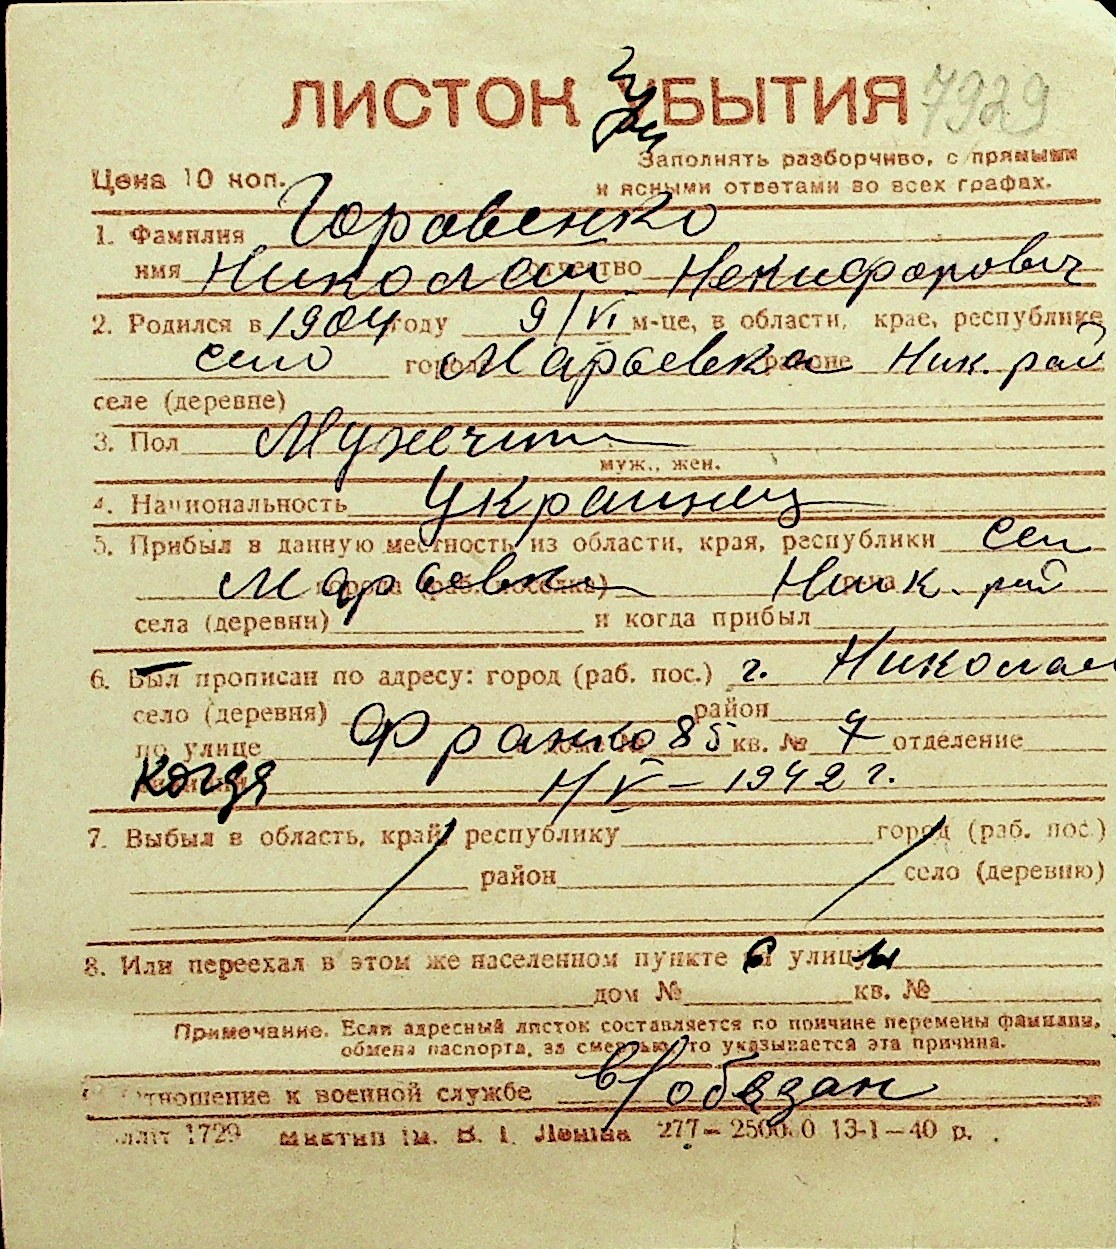 ЛИСТОК УБЫТИЯ 7929
Заполнять разборчиво, с прямыми
Цена 10 коп.
и ясными ответами во всех графах.
1. Фамилия Горавенко
имя Николай отчество Некифорович
2. Родился в 1904 году 9/VI м-це, в области, крае, республике
село город Марьевка районе Ник. рай
селе (деревне)
3. Пол Мужчин
муж., жен.
4. Национальность Украинец
5. Прибыл в данную местность из области, края, республики сел
Марьевка города (раб. поселка) Ник. рай
села (деревни) и когда прибыл
6. Был прописан по адресу: город (раб. пос.) г. Николаев
село (деревня) район
по улице Франко 85 кв. № 7 отделение
когда V – 1942 г.
7. Выбыл в область, край, республику город (раб. пос.)
район село (деревню)
8. Или переехал в этом же населенном пункте с улицы
дом № кв. №
Примечание. Если адресный листок составляется по причине перемены фамилии,
обмена паспорта, за смертью, то указывается эта причина.
Отношение к военной службе в/обязан
1729 им. В. І. Леніна 277 – 25000.0 13-1 – 40 р.